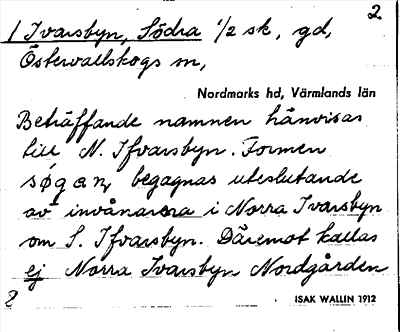 2
/ Ivarsbyn, Södra 1/2 sk, gd,
Östervallskogs sn,
Nordmarks hd, Värmlands län
Beträffande namnen hänvisas
till N. Ifvarsbyn. Formen
begagnas uteslutande
av invånarna i Norra Ivarsbyn
om S. Ifvarsbyn. Däremot kallas
ej Norra Ivarsbyn Nordgården
2
ISAK WALLIN 1912